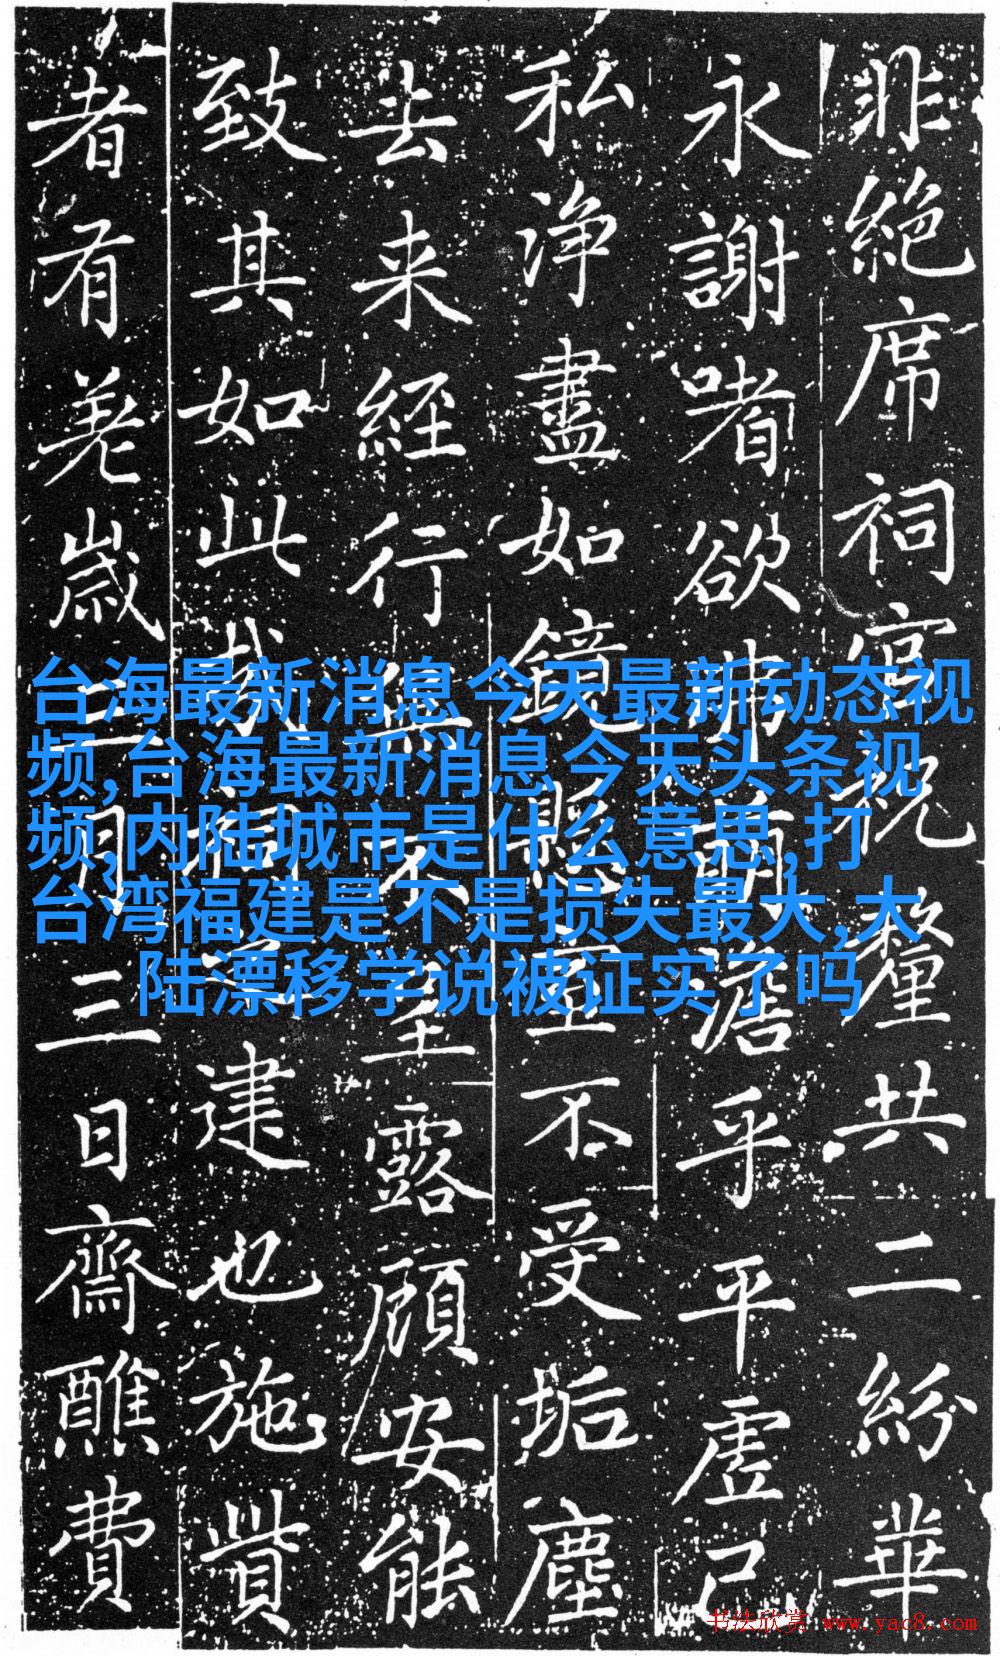 非絶席祠官祝釐共二紛華
永謝嗜欲弗萌澹乎平虛己
私浄盡如鏡懸不受垢塵
去来経行無不呈露顧安能
致其如此哉建也施貲
者有歲月三日齋醮費
台海最新消息今天最新动态视
频,台海最新消息今天头条视
频,内陆城市是什么意思,打
台湾福建是不是损失最大,大
陆漂移学说被证实了吗
书法欣赏 www.yac8.com